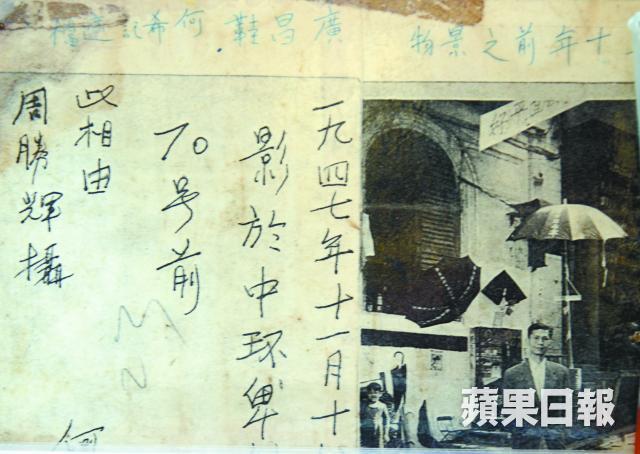 十年前之景物 廣昌鞋 何希記遮檔
一九四七年十一月十
影於中環俾
70号前
此相由
周勝輝攝
蘋果日報